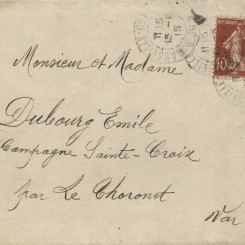 Monsieur et Madame
Dubourg Emile
Campagne Sainte-Croix
par Le Thoronet
Var
10